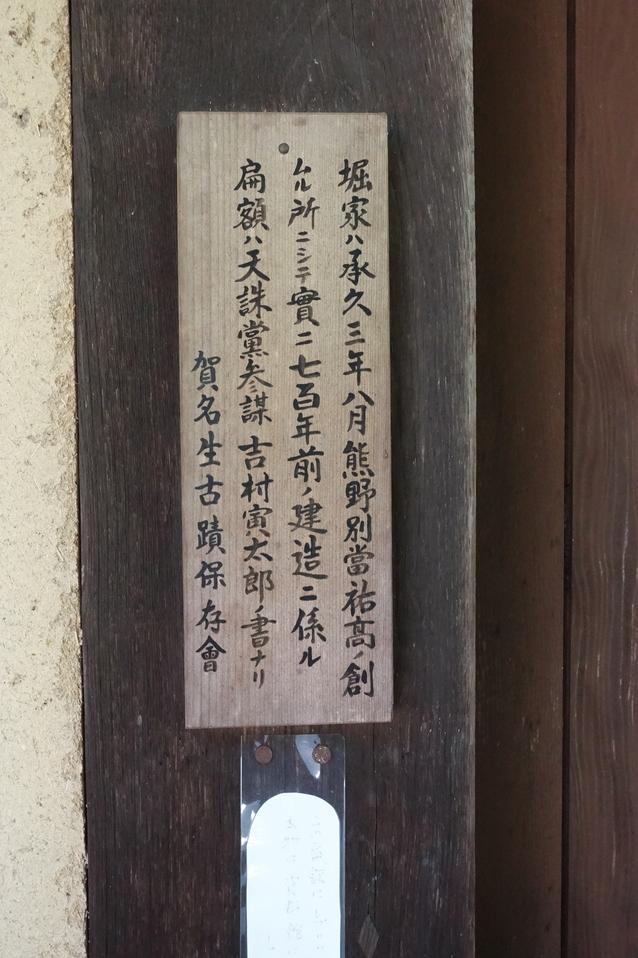 堀家ハ承久三年八月熊野別當祐高ノ創
ムル所ニシテ實ニ七百年前ノ建造ニ係ル
扁額ハ天誅黨参謀吉村寅太郎ノ書ナリ
賀名生古蹟保存會